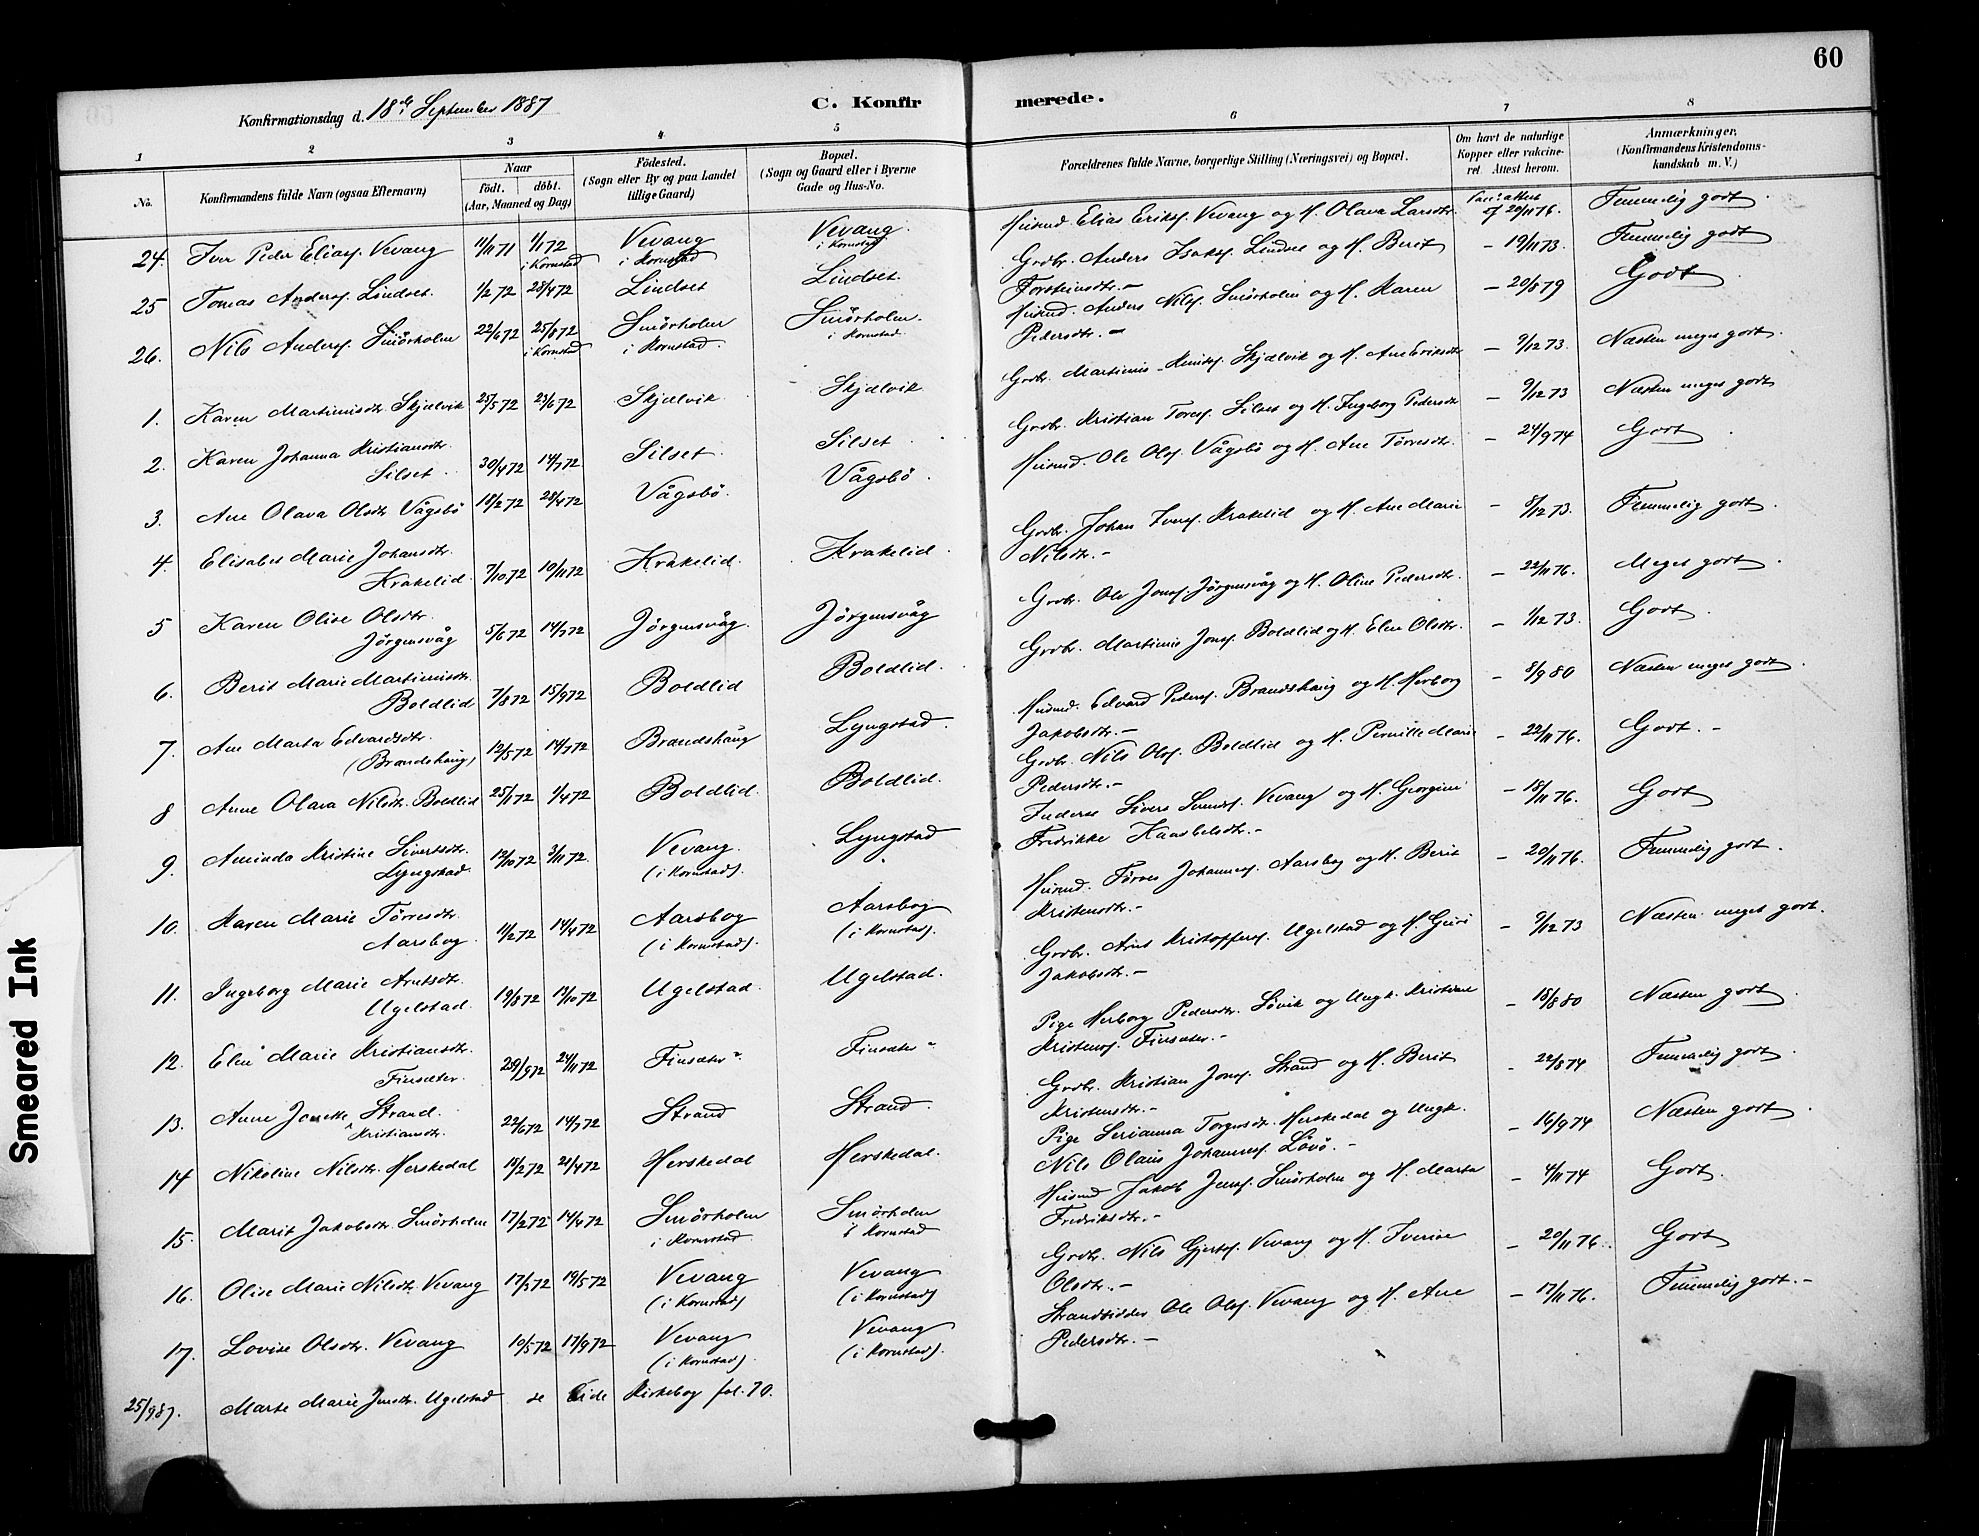 60
Konfirmationsdag d. 18de September 1887
C. Konfirmerede.
1 2 3 4 5 6 7 8
No.
Konfirmandens fulde Navn (ogsaa Efternavn)
Naar
födt. döbt.
(Aar, Maaned og Dag)
Födested.
(Sogn eller By og paa Landet
tillige Gaard)
Bopæl.
(Sogn og Gaard eller i Byerne
Gade og Hus-No.
Forældrenes fulde Navne, borgerlige Stilling (Næringsvei) og Bopæl.
Om havt de naturlige
Kopper eller vakcine-
ret. Attest herom.
Anmærkninger,
(Konfirmandens Kristendoms-
kundskab m. V.)
24. Iver Peder Eliass. Vevang 11/11 71 1/1 72 i Kornstad Vevang i Kornstad Vevang i Kornstad Husmd. Elias Eriks. Vevang og H. Olava Larsdtr. af 20/11 76. Temmelig godt.
25 Tomas Anders. Lindset. 1/2 72 28/4 72 Lindset Lindset. Grdbr. Anders Isaks. Lindset og H. Berit
Torsteinsdtr. – – 19/11 73. Temmelig godt
26. Nils Anders. Smörholm 22/6 72 25/8 72 i Kornstad Smörholm i Kornstad. Smörholm. i Kornstad. Husmd. Anders Nils. Smörholm og H. Karen
Pedersdtr. – – 20/8 79 Godt
1. Karen Martinusdtr. Skjælvik 25/5 72 23/6 72 Skjælvik Skjælvik Grdbr. Martinus Knuds. Skjælvik og H. Ane Eriksdtr – 9/12 73. Næsten meget godt.
2. Karen Johanna Kristiansdtr.
Silset. 30/4 72 14/7 72 Silset. Silset Grdbr. Kristian Tores. Silset og H. Ingeborg Pedersdtr – 9/12 73 Næsten meget godt
3. Ane Olava Olsdtr Vågsbö 18/2 72 28/4 72 Vågsbö. Vågsbö. Husmd. Ole Ols. Vågsbö og H. Ane Törresdtr. – 24/9 74 Godt
4. Elisabet Marie Johansdtr.
Krakelid. 7/10 72 10/11 72 Krakelid. Krakelid. Grdbr. Johan Ivers. Krakelid og H. Ane Marie
Nilsdtr. – – 8/12 73. Temmelig godt.
5 Karen Olise Olsdtr.
Jörgensvåg 5/6 72 14/7 72 Jörgensvåg. Jörgensvåg Grdbr. Ole Jons. Jörgensvåg og H. Oline Pedersdtr. – 22/11 76. Meget godt.
6. Berit Marie Martinusdtr.
Boldlid 7/8 72 15/9 72 Boldlid Boldlid. Grdbr. Martinus Jons. Boldlid og H. Elen Olsdtr. – 1/12 73. Godt.
7. Ane Marta Edvardsdtr.
(Brandshaug) 12/5 72 14/7 72 Brandshaug Lyngstad. Husmd. Edvard Peders. Brandshaug og H. Herborg
Jakobsdtr. – – 8/9 80 Næsten meget godt.
8 Anne Olava Nilsdtr. Boldlid 25/1 72 1/4 72 Boldlid. Boldlid. Grdbr. Nils Ols. Boldlid og H. Pernille Marie
Pedersdtr. – – 22/11 76. Godt. –
9. Aminda Kristine Sivertsdtr.
Lyngstad. 12/10 72 3/11 72. Vevang. (i Kornstad). Lyngstad Inderst Sivert Vevang og H. Georgine
Fredrikke – – 18/11 76. Godt
10. Karen Marie Törresdtr.
Aarsbog. 11/2 72 14/4 72 Aarsbog (i Kornstad). Aarsbog (i Kornstad). Husmd. Törres Johanness. Aarsbog og H. Berit
Kristensdtr. – – 20/11 76. Temmelig godt.
11. Ingeborg Marie Arntsdtr.
Ugelstad. 19/8 72 13/10 72 Ugelstad. Ugelstad. Grdbr. Arnt Kristoffers. Ugelstad og H. Guri
Jakobsdtr. – – 9/12 73 Næsten meget godt.
12. Elen Marie Kristiansdtr.
Finsæter. 29/9 72 24/11 72 Finsæter Finsæter Pige Herborg Pedersdtr. Lövik og Ungk. Kristian
Kristens. Finsæter. – – 18/8 80 Næsten godt
13. Anne Jonette Strand.
Kristiansdtr. 22/6 72 14/7 72 Strand Strand. Grdbr. Kristian Jons. Strand og H. Berit
Kristensdtr. – – 22/8 74 Temmelig godt.
14 Nikoline Nilsdtr. Herskedal 18/2 72 21/4 72 Herskedal Herskedal. Pige Serianna Torgersdtr. Herskedal og Ungk.
Nils Olaus Johanness. Lövö. – – 16/9 74 Næsten godt.
15. Marit Jakobsdtr. Smörholm 17/2 72 14/4 72 Smörholm i Kornstad Smörholm i Kornstad Husmd Jakob Jens. Smörholm og H. Marta
Fredriksdtr. – – 4/11 74 Godt.
16. Olise Marie Nilsdtr. Vevang 17/3 72 19/5 72 Vevang (i Kornstad) Vevang (i Kornstad) Grdbr. Nils Gjerts. Vevang og H. Iverine
Olsdtr. – – 20/11 76. Godt
17. Lovise Olsdtr. Vevang 10/5 72 17/9 72 Vevang (i Kornstad). Vevang (i Kornstad). Strandsidder Ole Ols. Vevang og H. Ane
Pedersdtr. – – 17/11 76. Temmelig godt. –
25/9 87. Marte Marie Jensdtr. Ugelstad se Eide Kirkebog fol. 70.
Smeared Ink